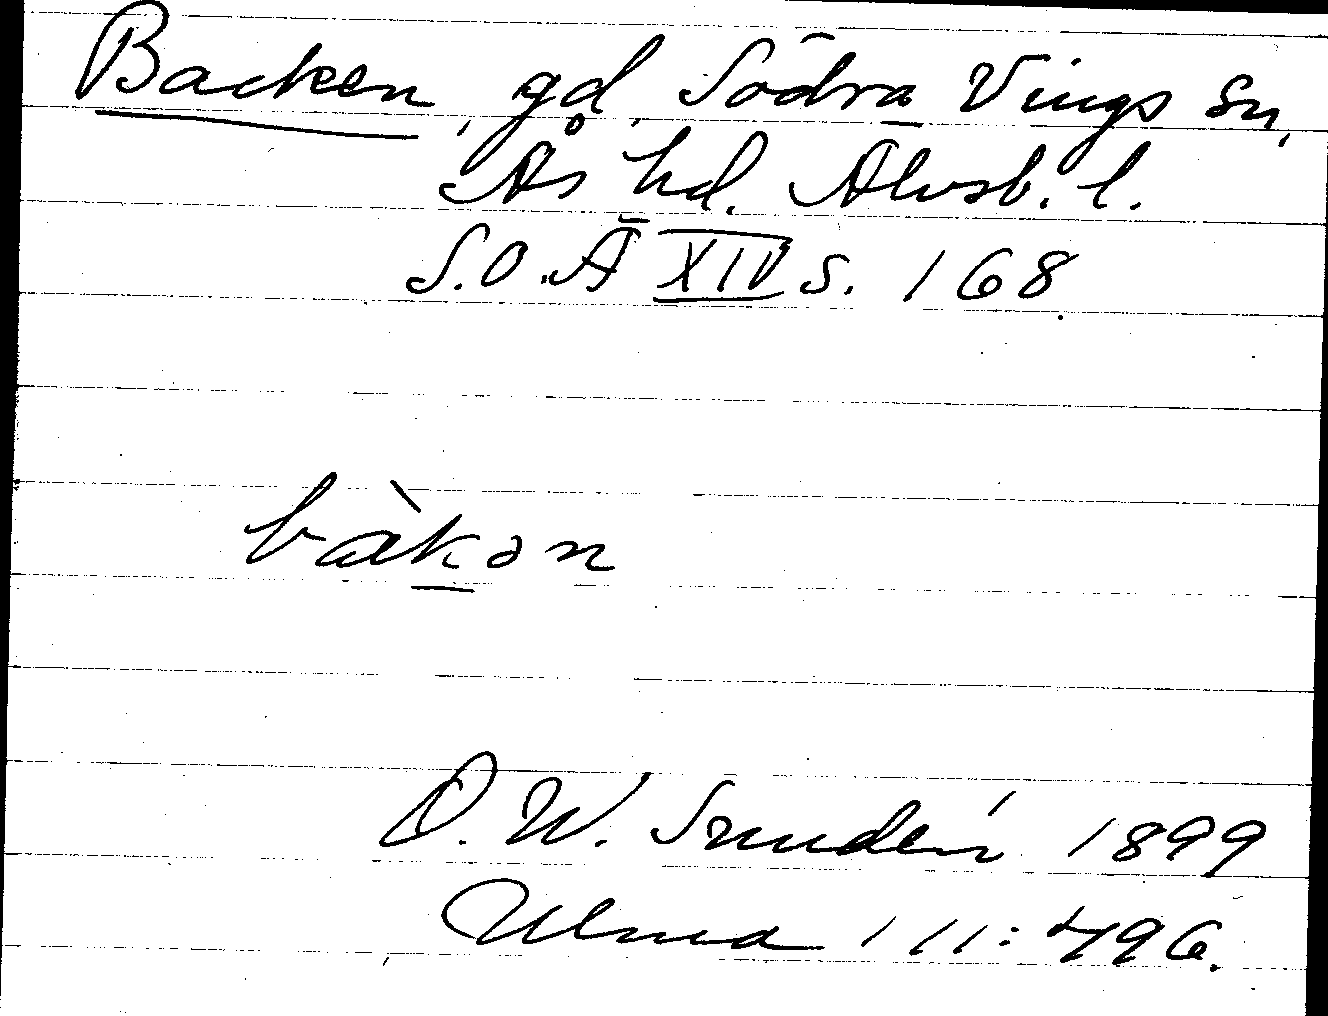 Backen, gd, Södra Vings sn,
Ås hd. Älvsb. l.
S.O.Ä XIV s. 168
bàkən
O. W. Smedén 1899
Ulma 111:496.